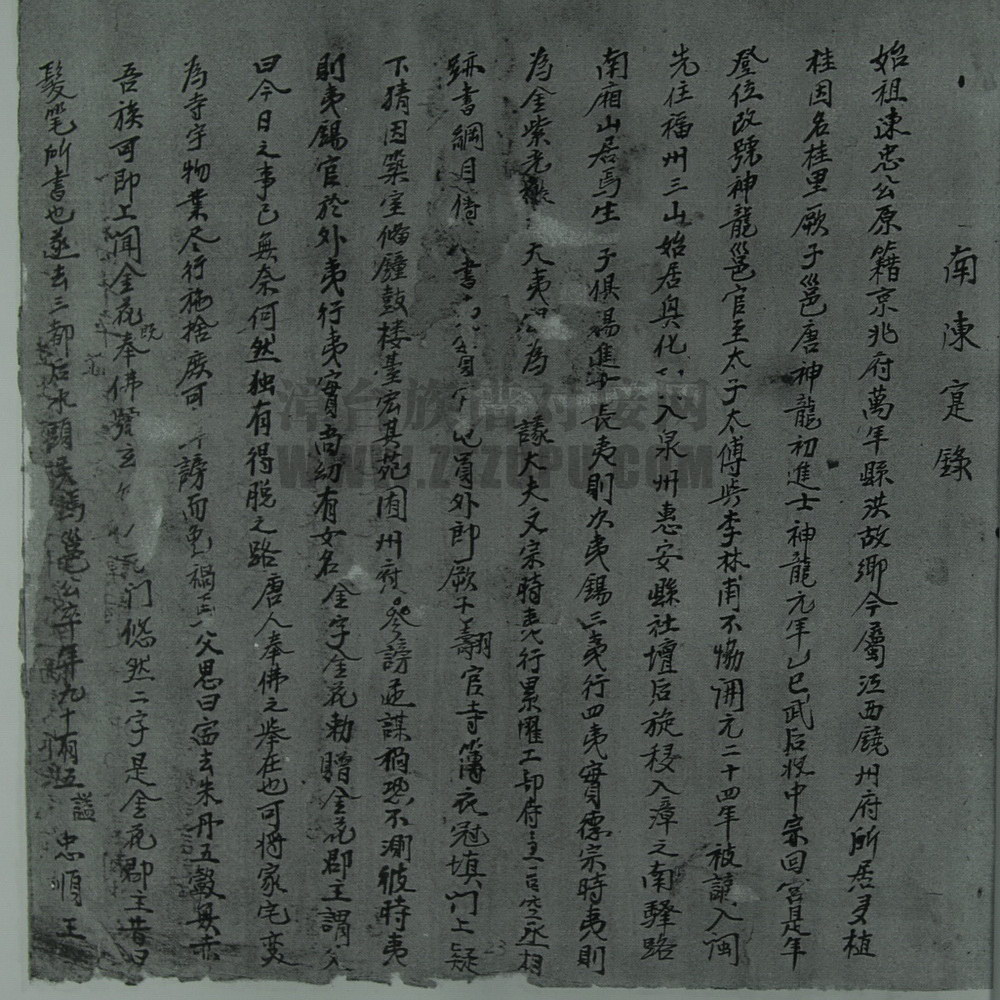 南陳寔錄
始祖陳忠公原籍京兆府萬年縣洪故鄉今屬江西饒州府所居多植
桂因名桂里厥子邕唐神龍初進士神龍元年乙巳武后收中宗回宮是年
登位改號神龍邕官至太子太傅与李林甫不恊開元二十四年被謫入閩
先住福州三山始居興化 入泉州惠安縣社壇后旋移入漳之南驛路
南廂山居焉生 子俱楊進 長夷則次夷錫三夷行四夷實德宗時夷則
為金紫光 夫夷 為 議大夫文宗時夷行累擢工部 丞相
跡書綱目 書 員外郎厥子翱官寺簿衣冠填門上疑
下猜因築室俻鐘鼓楼臺宏其苑囿州府 謗並謀 恐不測彼時夷
則夷錫官於外夷行夷實尚幼有女名金字金花勅贈金花郡主謂父
曰今日之事已無奈何然独有得脱之路唐人奉佛之㪯在也可將家宅变
為寺宇物業尽行施捨庶可 謗而免禍 父思曰 去朱丹五 與赤
吾族可即上聞金花既奉佛 立 门悠然二字是金花郡主昔日
髮笔所書也遂去三都后水頭 邕公 年九十有五諡忠順王
漳台族谱对接网
WWW.ZTZUPU.COM